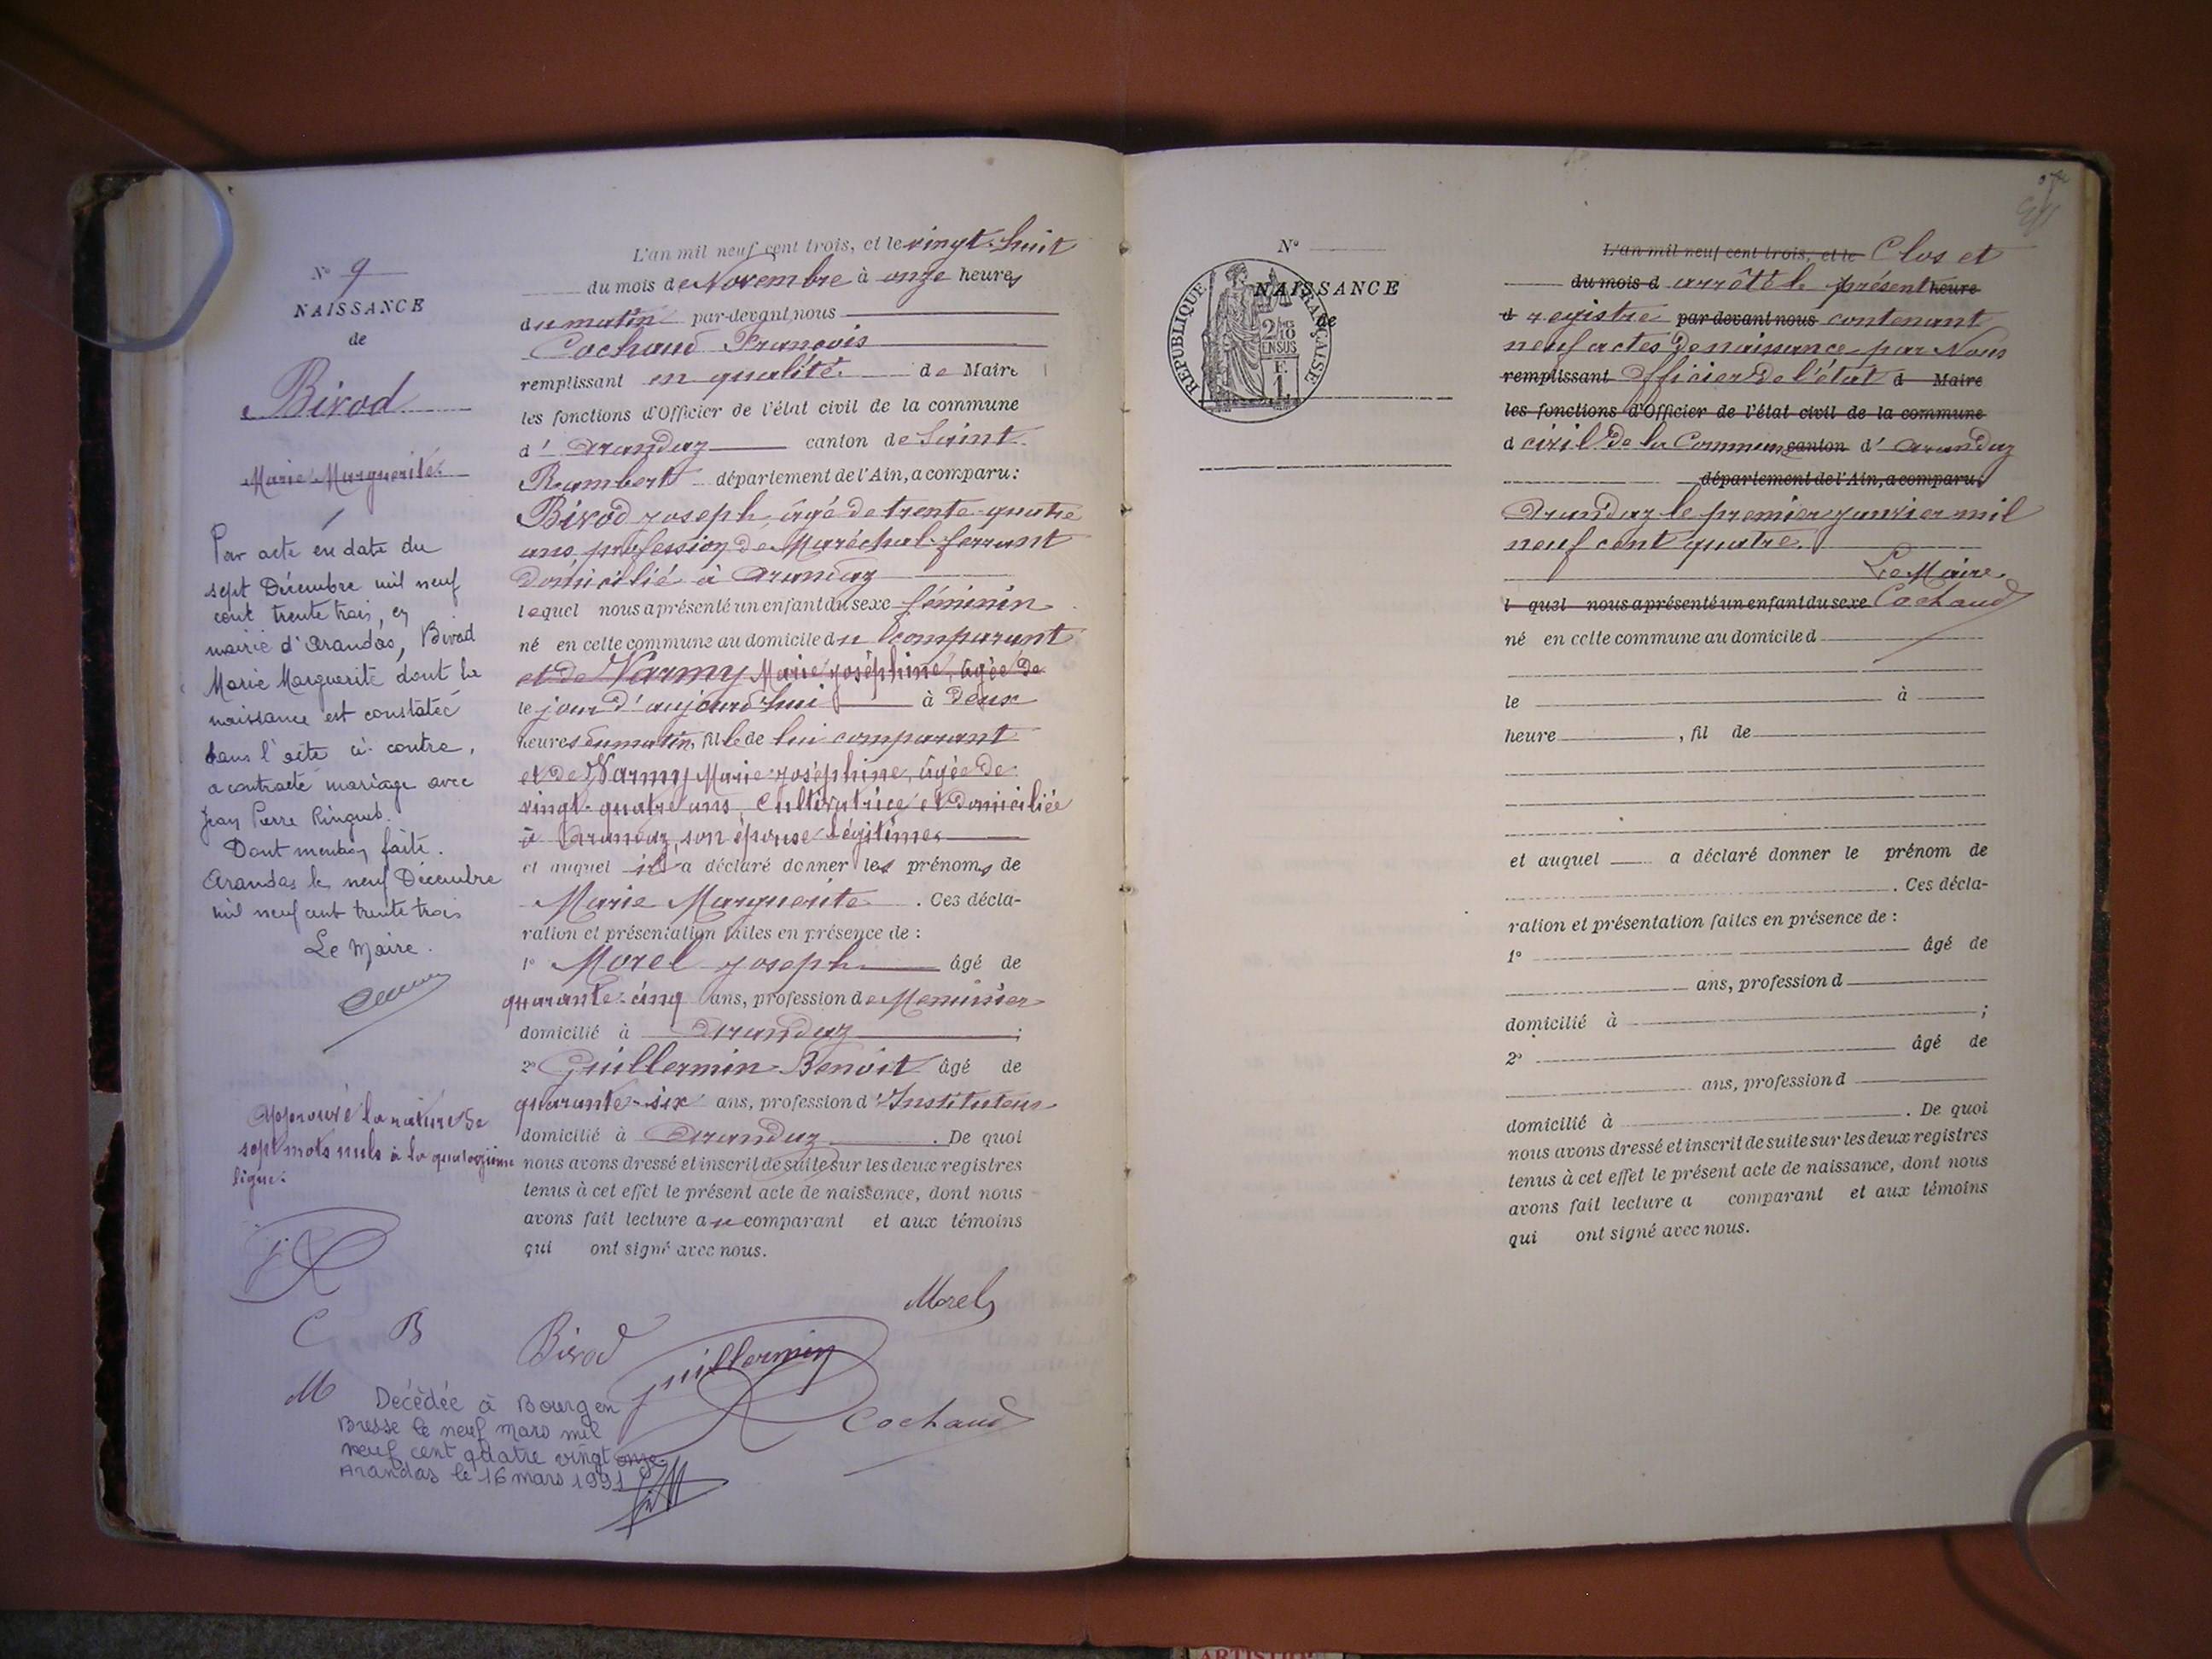 N° 9
NAISSANCE
de
Bivod
Marie Marguerite
Par acte en date du
sept Décembre mil neuf
cent trente trois, en
mairie d'Arandas, Bivod
Marie Marguerite dont la
naissance est constatée
dans l'acte ci-contre,
a contracté mariage avec
Jean Pierre Ringues.
Dont mention faite.
Arandas le neuf Décembre
mil neuf cent trente trois
Le Maire.
Approuvé la rature de
sept mots nuls à la quatorzième
ligne.
C B
M
Décédée à Bourg en
Bresse le neuf mars mil
neuf cent quatre vingt onze
Arandas le 16 mars 1991
L'an mil neuf cent trois, et le vingt-huit
du mois de Novembre à onze heures
du matin par-devant nous
Cochaud François
remplissant en qualité de Maire
les fonctions d'Officier de l'état civil de la commune
d'Arandaz canton de Saint-
Rambert département de l'Ain, a comparu:
Bivod Joseph, âgé de trente-quatre
ans, profession de Maréchal-ferrant
domicilié à Arandaz
lequel nous a présenté un enfant du sexe féminin
né en cette commune au domicile du comparant
et de Varmy Marie Joséphine, âgée de
le jour d'aujourd'hui à deux
heures du matin, fille de lui comparant
et de Varmy Marie Joséphine, âgée de
vingt-quatre ans, Cultivatrice et domiciliée
à Arandaz, son épouse légitime
et auquel il a déclaré donner les prénoms de
Marie Marguerite. Ces décla-
ration et présentation faites en présence de :
1° Morel Joseph âgé de
quarante-cinq ans, profession de Menuisier
domicilié à Arandaz ;
2° Guillermin Benoit âgé de
quarante-six ans, profession d'Instituteur
domicilié à Arandaz. De quoi
nous avons dressé et inscrit de suite sur les deux registres
tenus à cet effet le présent acte de naissance, dont nous
avons fait lecture au comparant et aux témoins
qui ont signé avec nous.
Morel
Bivod
Guillermin
Cochaud
N°
NAISSANCE
de
REPUBLIQUE FRANÇAISE
2/10
EN SUS
F.
1
L'an mil neuf cent trois, et le Clos et
du mois d arrêté le présent heure
d registre par devant nous contenant
neuf actes de naissance par Nous
remplissant Officier de l'état d Maire
les fonctions d'Officier de l'état civil de la commune
d civil de la Commune canton d'Arandaz
département de l'Ain, a comparu:
Arandaz le premier janvier mil
neuf cent quatre.
Le Maire,
l quel nous a présenté un enfant du sexe Cochaud
né en cette commune au domicile d
le à
heure , fil de
et auquel a déclaré donner le prénom de
. Ces décla-
ration et présentation faites en présence de :
1° âgé de
ans, profession d
domicilié à ;
2° âgé de
ans, profession d
domicilié à . De quoi
nous avons dressé et inscrit de suite sur les deux registres
tenus à cet effet le présent acte de naissance, dont nous
avons fait lecture a comparant et aux témoins
qui ont signé avec nous.